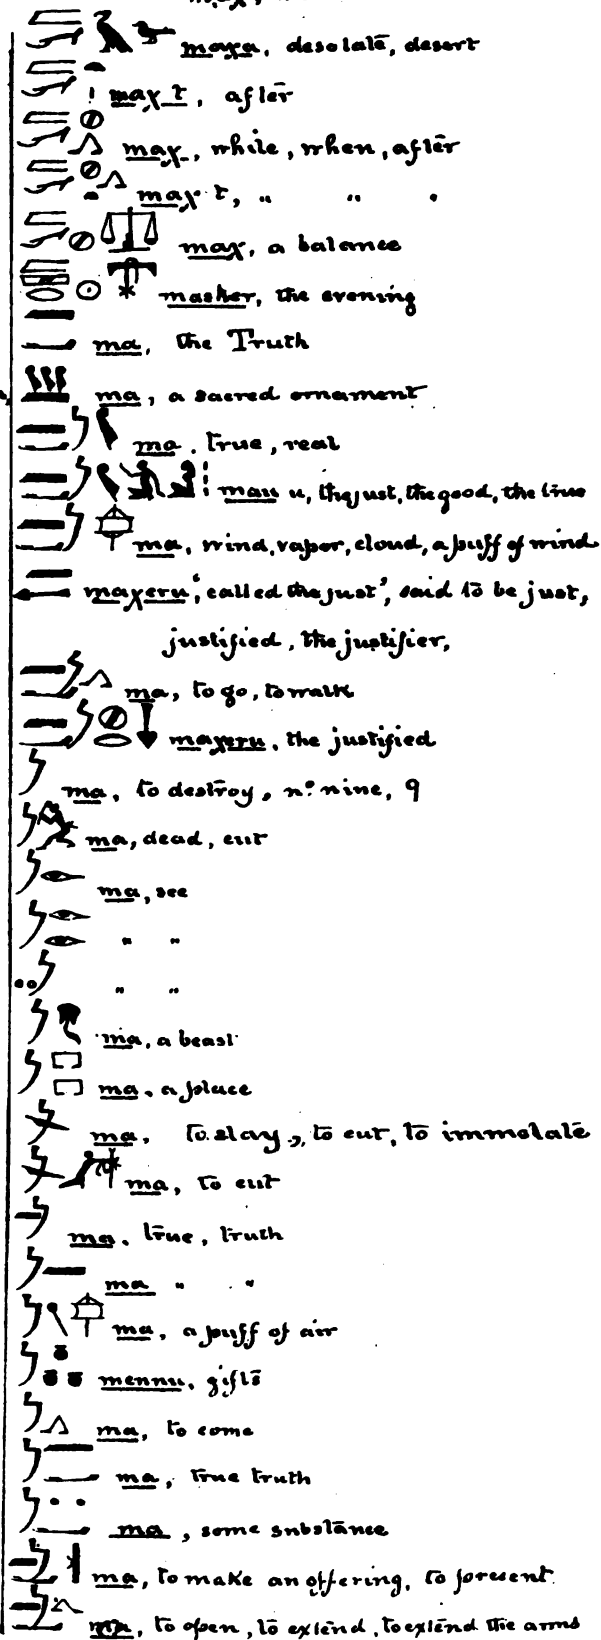 maxa, desolate, desert
max t, after
max, while, when, after
max t, " " .
max, a balance
masker, the evening
ma, the Truth
ma, a sacred ornament
ma. true, real
mau u, the just, the good, the true
ma, wind, vapor, cloud, a puff of wind
maxeru, "called the just", said to be just,
justified, the justifier,
ma, to go, to walk
maxeru, the justified
ma, to destroy, n.° nine, 9
ma, dead, cut
ma, see
" "
" "
ma, a beast
ma, a place
ma, to slay, to cut, to immolate
ma, to cut
ma. true, truth
ma " "
ma, a puff of air
mennu, gifts
ma, to come
ma, true truth
ma, some substance
ma, to make an offering, to present
ma, to open, to extend, to extend the arms